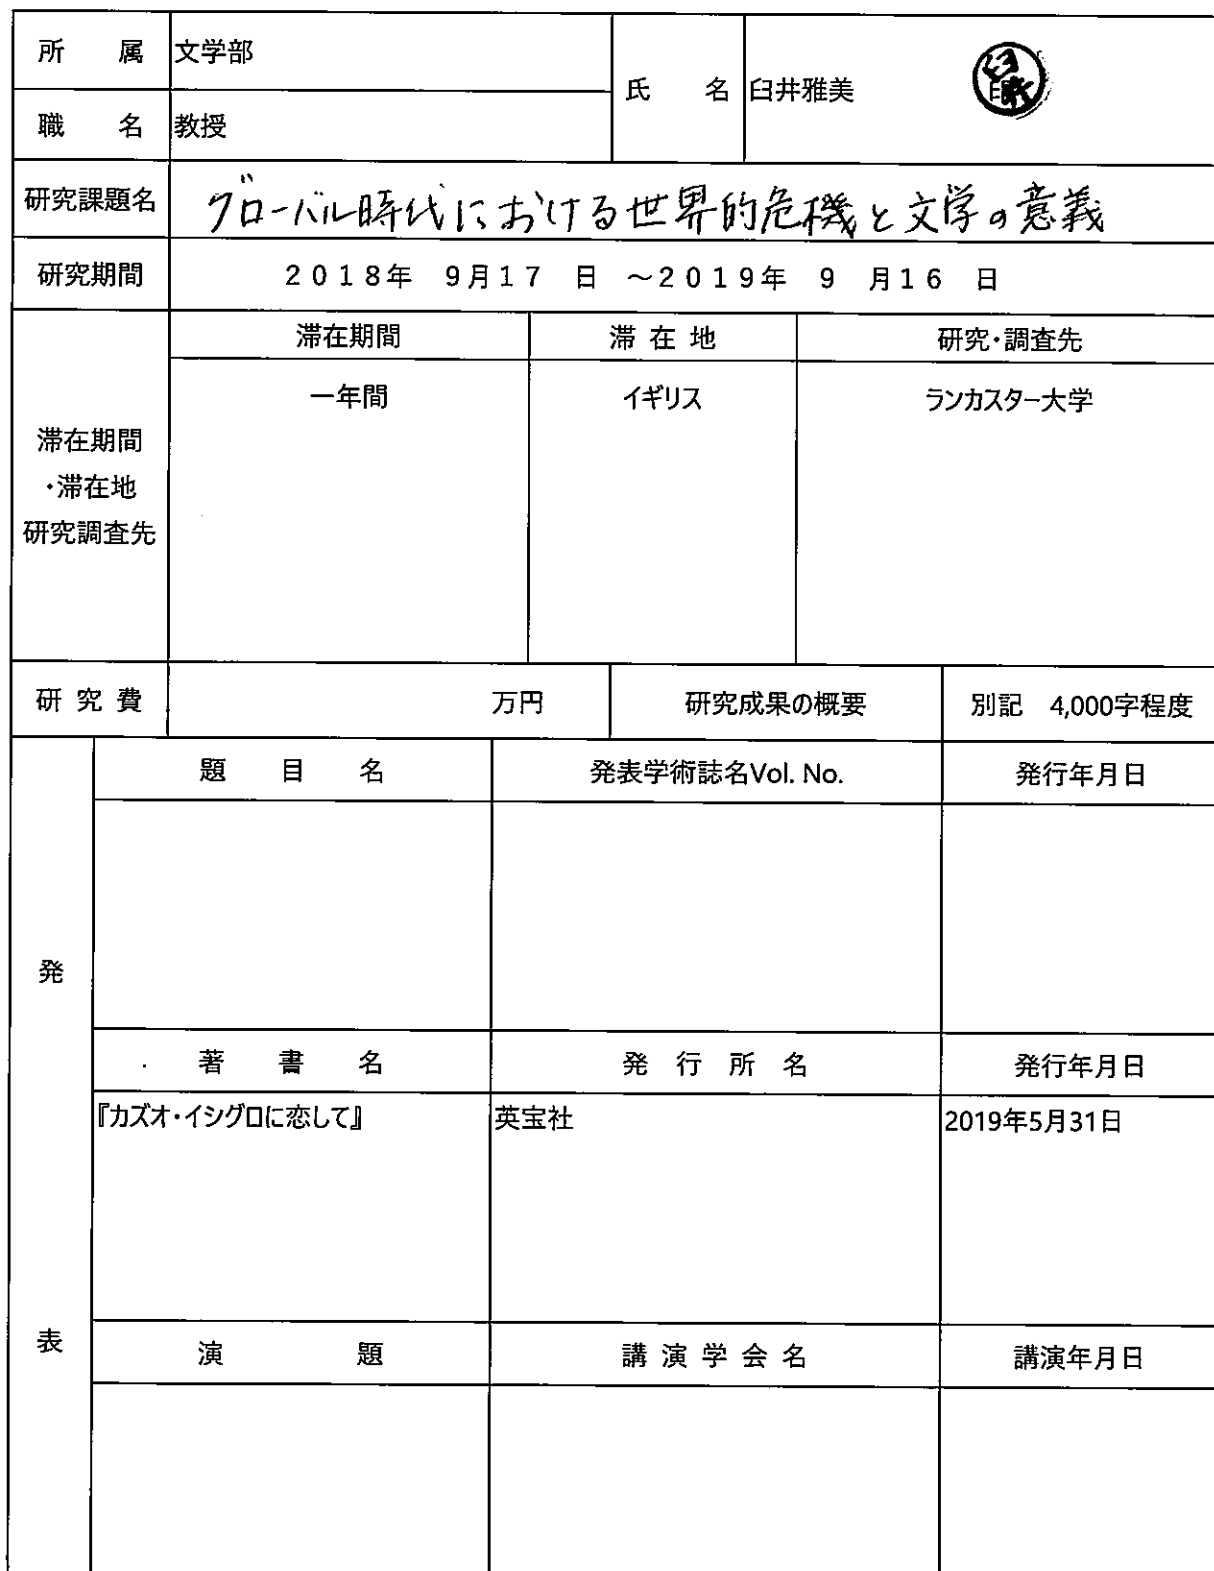 所 属 文学部
氏 名 臼井雅美
臼井
印
職 名 教授
研究課題名 グローバル時代における世界的危機と文学の意義
研究期間 2018年 9月17 日 ～2019年 9 月16 日
滞在期間 滞 在 地 研究・調査先
一年間 イギリス ランカスター大学
滞在期間
・滞在地
研究調査先
研 究 費 万円 研究成果の概要 別記 4,000字程度
題 目 名 発表学術誌名Vol. No. 発行年月日
発
著 書 名 発 行 所 名 発行年月日
『カズオ・イシグロに恋して』 英宝社 2019年5月31日
表
演 題 講 演 学 会 名 講演年月日